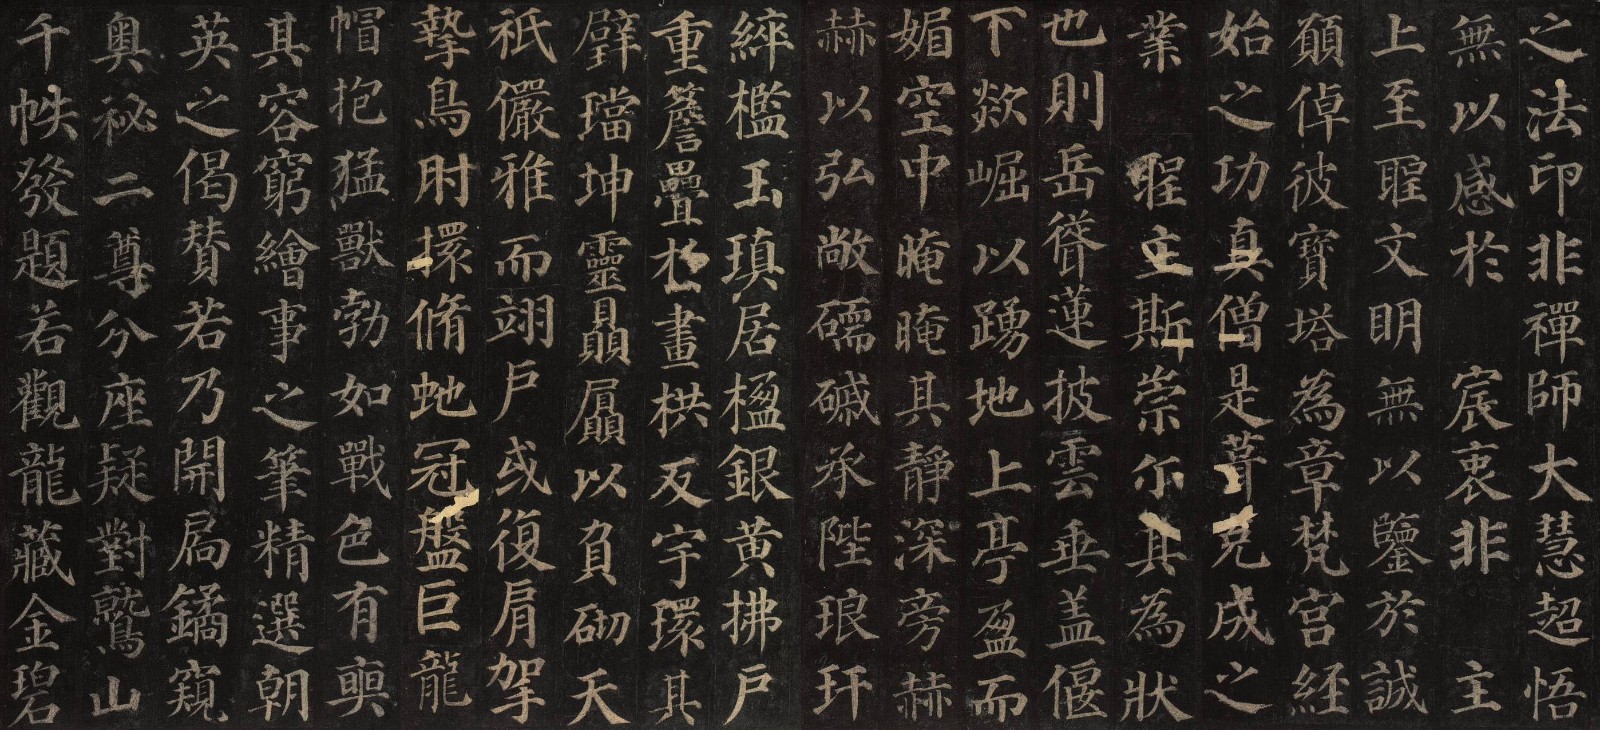 之法印非禪師大慧超悟
無以感於宸衷非主
上至聖文明無以鑒於誠
願倬彼寶塔為章梵宮経
始之功真僧是葺克成之
業聖主斯崇尒其為狀
也則岳聳蓮披雲垂盖偃
下欻崛以踴地上亭盈而
媚空中晻晻其靜深旁赫
赫以弘敞礝磩承陛琅玕
綷檻玉瑱居楹銀黃拂戶
重簷疊於畫栱反宇環其
壁璫坤靈贔屭以負砌天
祇儼雅而翊戶或復肩拏
摯鳥肘擐脩虵冠盤巨龍
帽抱猛獸勃如戰色有奭
其容窮繪事之筆精選朝
英之偈贊若乃開扃鐍窺
奧祕二尊分座疑對鷲山
千帙發題若觀龍藏金碧